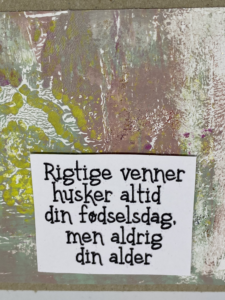 Rigtige venner
husker altid
din fødselsdag,
men aldrig
din alder